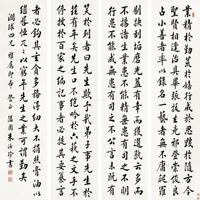 業精於勤荒於嬉行成於思毀於隨方今
聖賢相逢治具畢張拔去兇邪登崇俊良
占小善者率以錄名一藝者無不庸爬羅
剔抉刮垢磨光蓋有幸而獲選孰云多而
不揚諸生業患不能精無患有司之不明
行患不能成無患有司之不公言未既有
笑於列者曰先生欺余哉弟子事先生於
茲有年矣先生口不絕吟於六藝之文手不
停披於百家之編記事者必提其要纂言
者必鉤其玄貪多務得細大不捐焚膏油以
繼晷恆兀兀以窮年先生之業可謂勤矣
四兄雅屬即希 正 隘園朱汝珍書